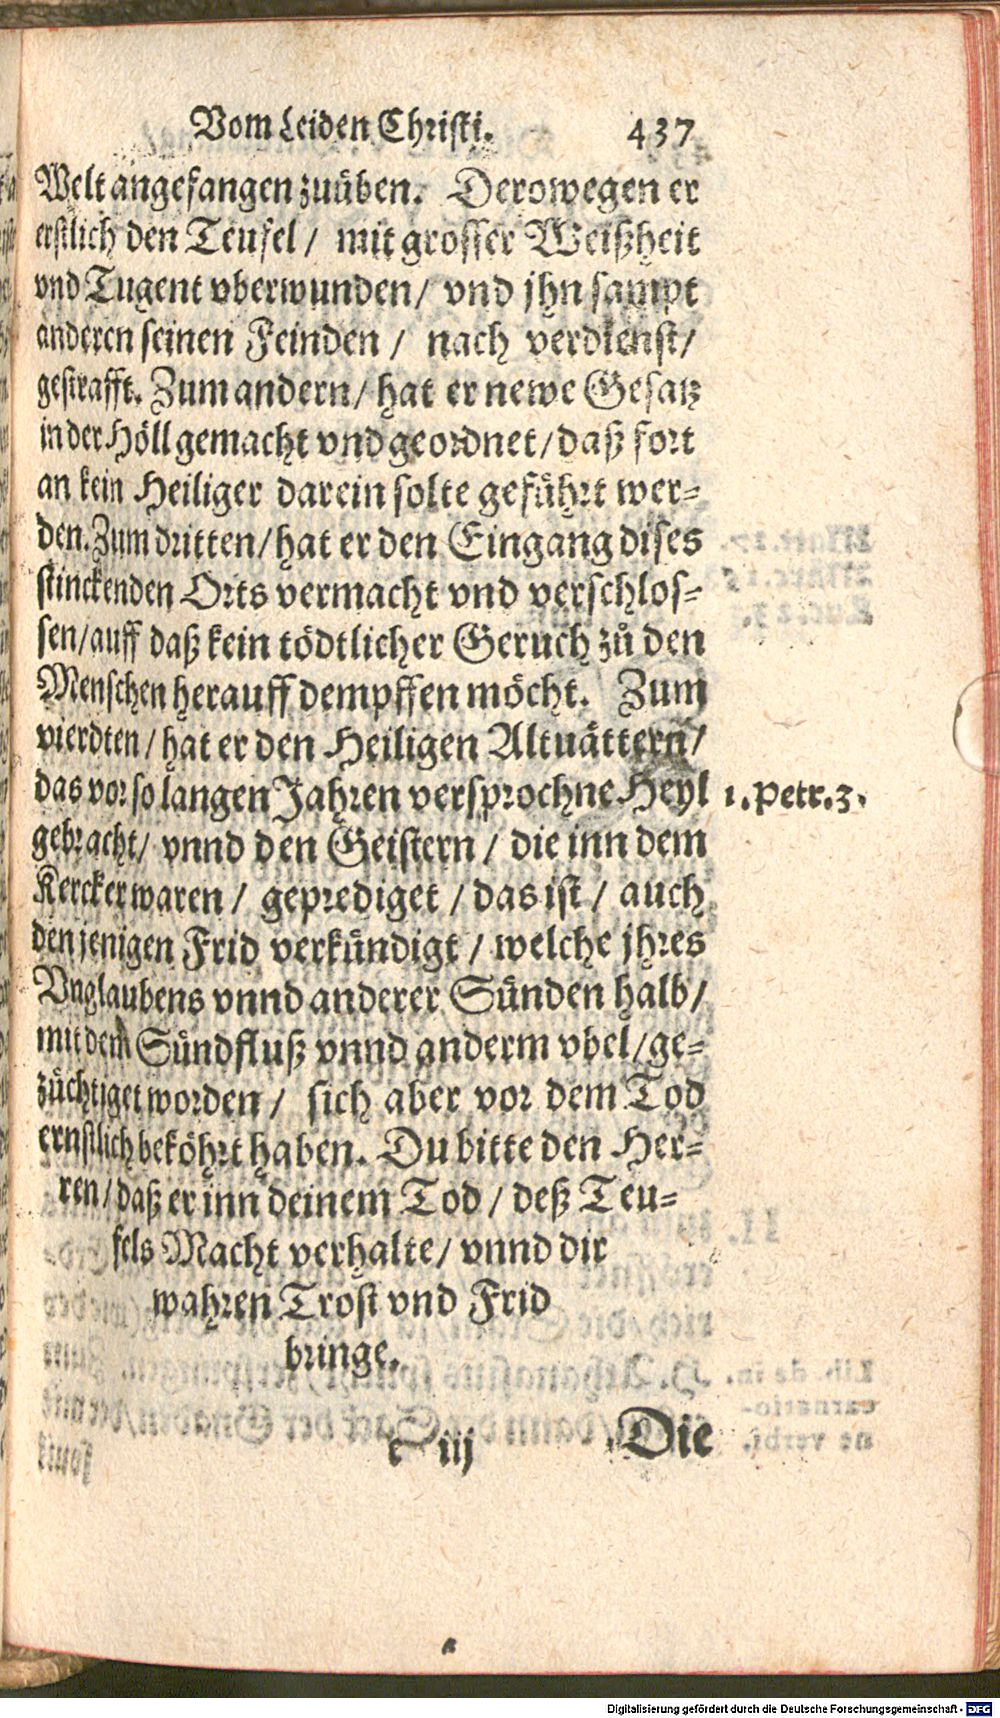 Vom Leiden Christi. 437
Welt angefangen zuüben. Derowegen er
erstlich den Teufel / mit grosser Weißheit
vnd Tugent vberwunden / vnd jhn sampt
anderen seinen Feinden / nach verdienst /
gestrafft. Zum andern / hat er newe Gesatz
in der Höll gemacht vnd geordnet / daß fort
an kein Heiliger darein solte geführt wer=
den. Zum dritten / hat er den Eingang dises
stinckenden Orts vermacht vnd verschlos=
sen / auff daß kein tödtlicher Geruch zů den
Menschen herauff dempffen möcht. Zum
vierdten / hat er den Heiligen Altuättern /
das vor so langen Jahren versprochne Heyl
1. Petr. 3.
gebracht / vnnd den Geistern / die inn dem
Kercker waren / geprediget / das ist / auch
den jenigen Frid verkündigt / welche jhres
Vnglaubens vnnd anderer Sünden halb /
mit dem Sündfluß vnnd anderm vbel / ge=
züchtiget worden / sich aber vor dem Tod
ernstlich beköhrt haben. Du bitte den Her=
ren / daß er inn deinem Tod / deß Teu=
fels Macht verhalte / vnnd dir
wahren Trost vnd Frid
bringe.
e iij Die
Digitalisierung gefördert durch die Deutsche Forschungsgemeinschaft - DFG